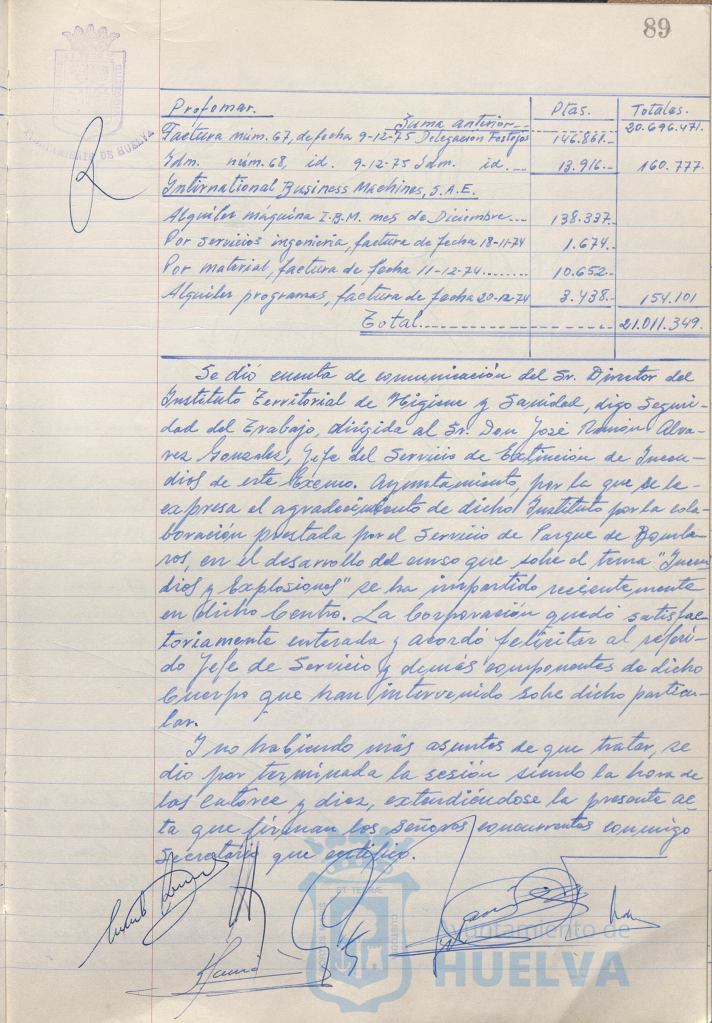 89
AYUNTAMIENTO DE HUELVA
Profomar. Ptas. Totales.
Suma anterior... 20.696.471.
Factura núm. 67, de fecha 9-12-75 Delegación Festejos 146.861.-
Idm. núm. 68, id. 9-12-75 Idm. id.... 13.916.- 160.777.
International Business Machines, S.A.E.
Alquiler máquina I.B.M. mes de Diciembre... 138.337.-
Por servicios ingeniería, factura de fecha 18-11-74 1.674.-
Por material, factura de fecha 11-12-74........ 10.652.-
Alquiler programas, factura de fecha 20-12-74 3.438.- 154.101
Total..................... 21.011.349.
Se dió cuenta de comunicación del Sr. Director del
Instituto Territorial de Higiene y Sanidad, digo Seguri-
dad del Trabajo, dirigida al Sr. Don José Ramón Alva-
rez Gonzalez, Jefe del Servicio de Extinción de Incen-
dios de este Excmo. Ayuntamiento, por la que se le
expresa el agradecimiento de dicho Instituto por la cola-
boración prestada por el Servicio de Parque de Bombe-
ros, en el desarrollo del curso que sobre el tema "Incen-
dios y Explosiones" se ha impartido recientemente
en dicho Centro. La Corporación quedó satisfac-
toriamente enterada y acordó felicitar al referi-
do Jefe de Servicio y demás componentes de dicho
Cuerpo que han intervenido sobre dicho particu-
lar.
Y no habiendo más asuntos de que tratar, se
dio por terminada la sesión siendo la hora de
las catorce y diez, extendiéndose la presente ac-
ta que firman los señores concurrentes conmigo
Secretario que certifico.
Ayuntamiento de
HUELVA